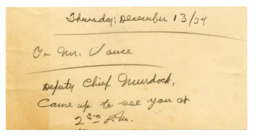 Thursday, December 13/34
To Mr. Vance
Deputy Chief Murdock,
Came up to see you at
2:30 P.M.